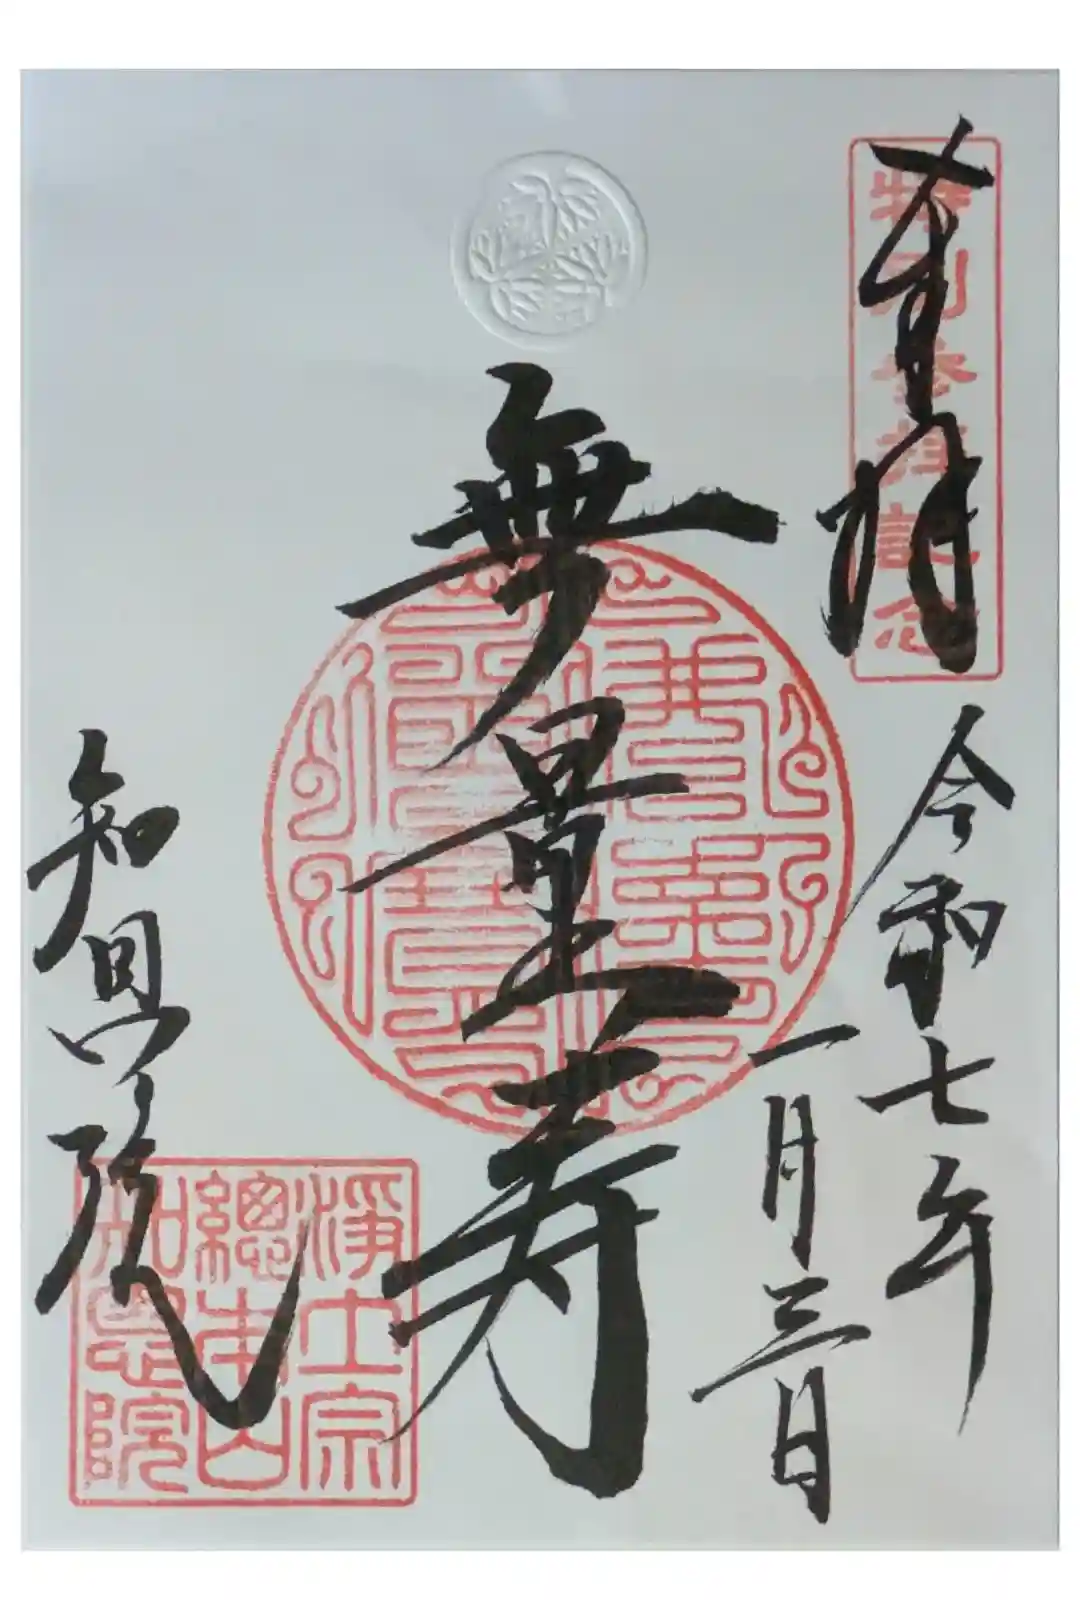 奉拝
特別参拝記念
令和七年
一月三日
無量寿
知恩院
淨土宗
總本山
知恩院